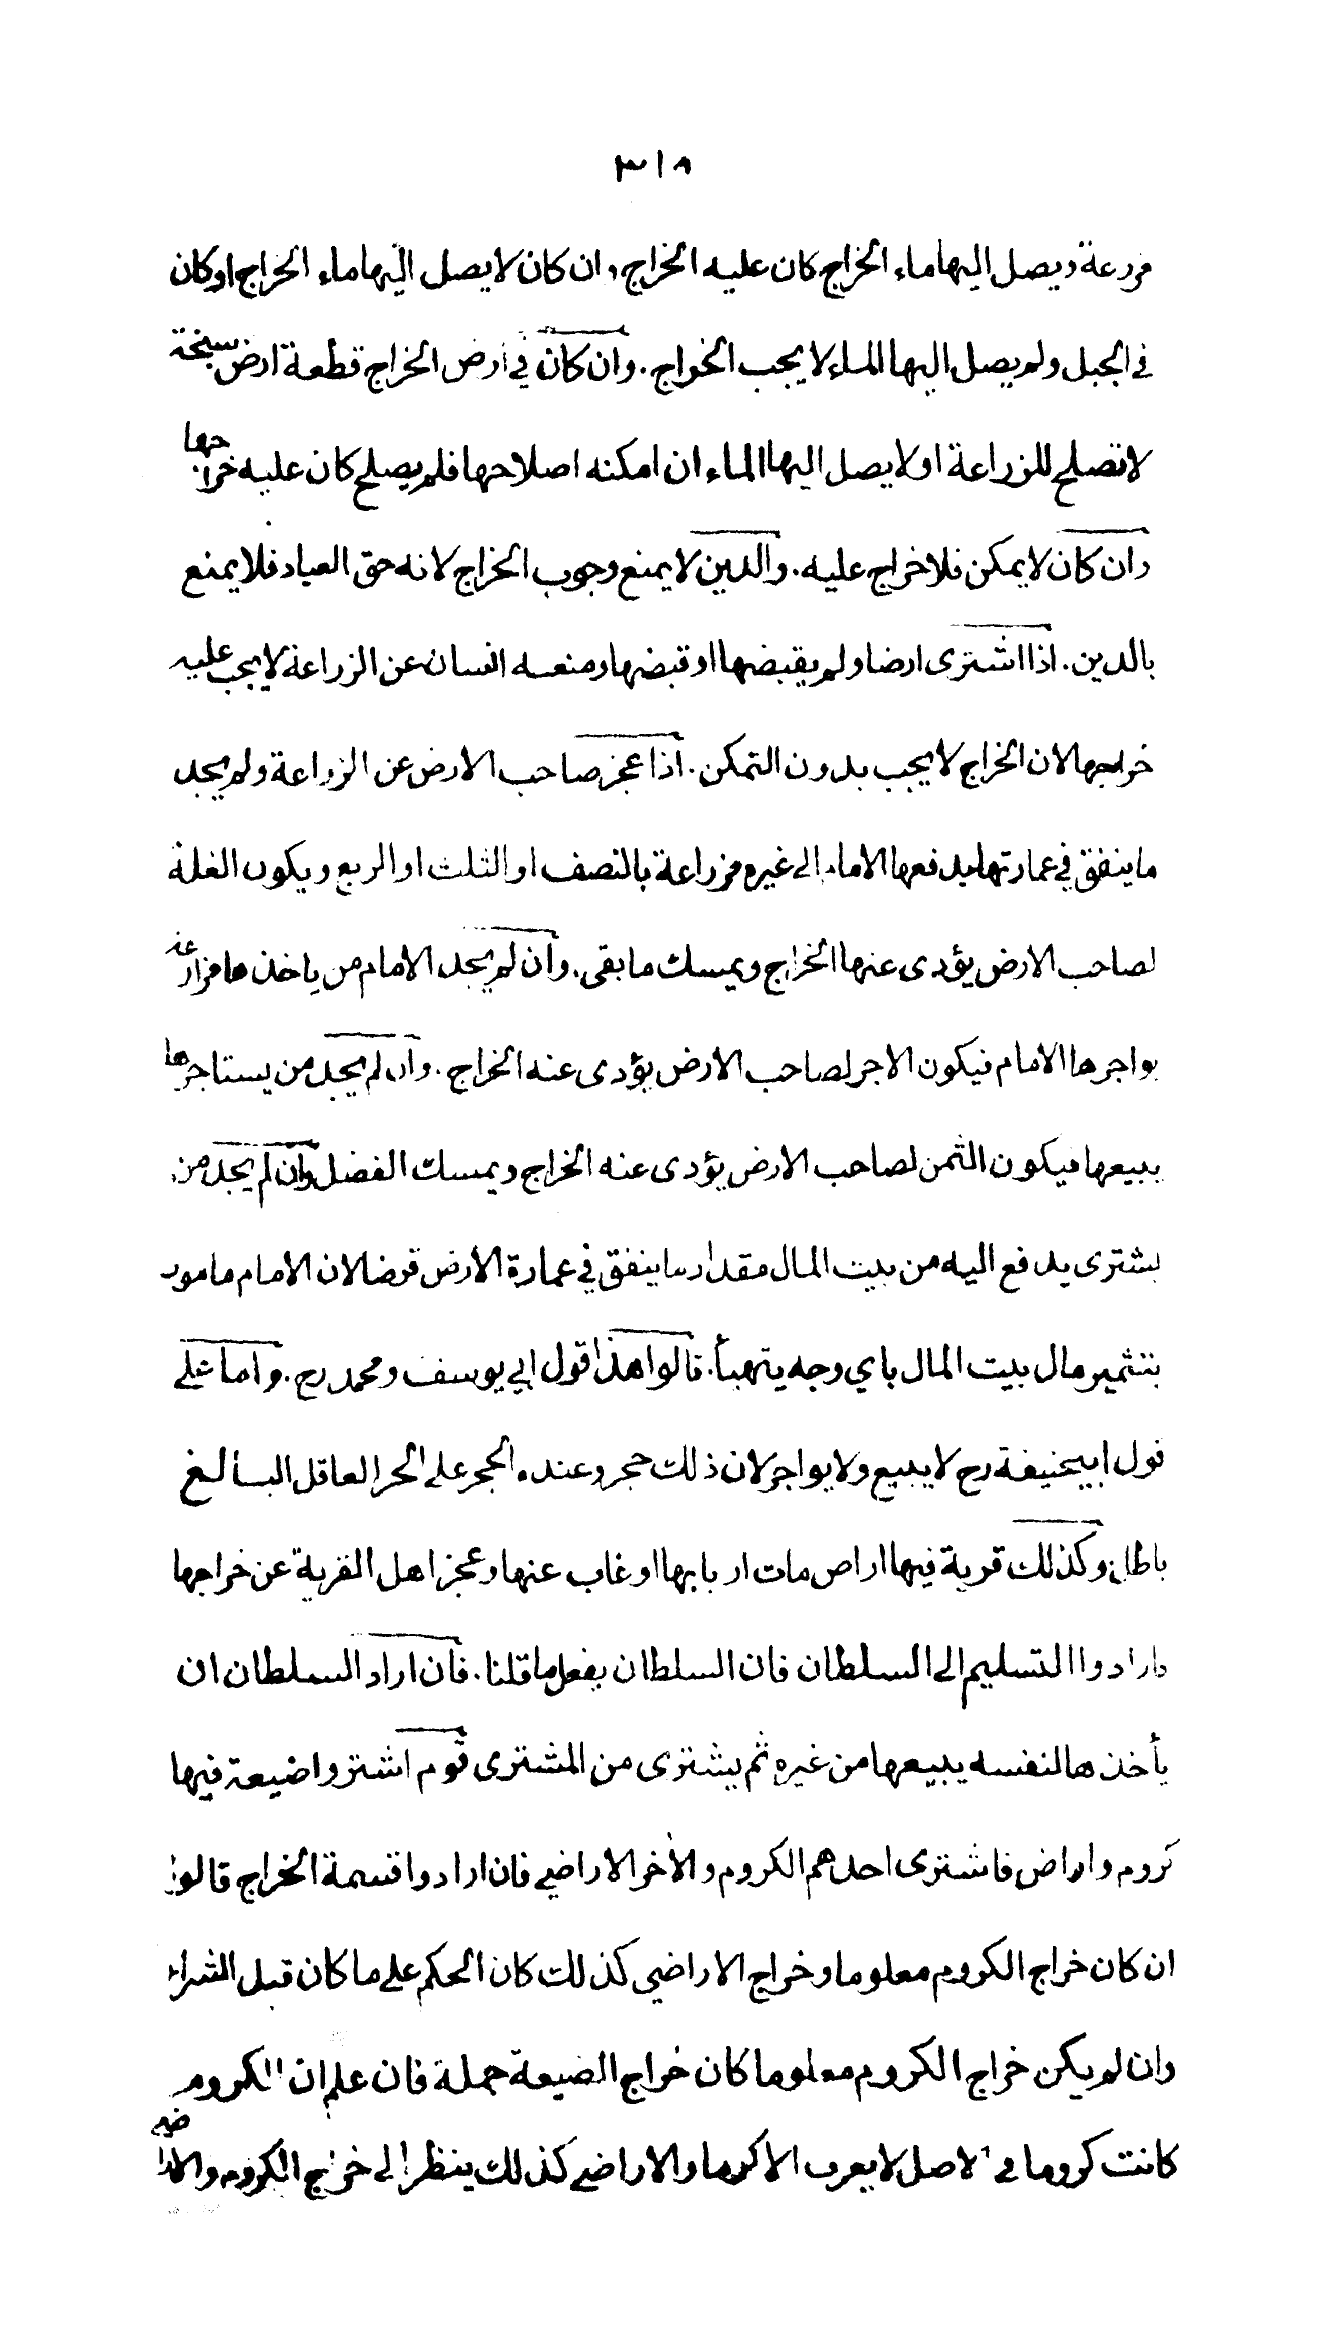 ٣١٨
مزرعة ويصل اليها ماء الخراج كان عليه الخراج، وان كان لا يصل اليها ماء الخراج او كان
في الجبل ولم يصل اليها الماء لا يجب الخراج. وان كان في ارض الخراج قطعة ارض سبخة
لا تصلح للزراعة او لا يصل اليها الماء ان امكنه اصلاحها فلم يصلح كان عليه خراجها
وان كان لا يمكن فلا خراج عليه. والدين لا يمنع وجوب الخراج لانه حق العباد فلا يمنع
بالدين. اذا اشترى ارضا ولم يقبضها او قبضها ومنعه انسان عن الزراعة لا يجب عليه
خراجها لان الخراج لا يجب بدون التمكن. اذا عجز صاحب الارض عن الزراعة ولم يجد
ما ينفق في عمارتها يدفعها الامام الى غيره مزراعة بالنصف او الثلث او الربع ويكون الغلة
لصاحب الارض يؤدى عنها الخراج ويمسك ما بقى. وان لم يجد الامام من ياخذها مزارعة
يواجرها الامام فيكون الاجر لصاحب الارض يؤدى عنه الخراج. وان لم يجد من يستاجرها
يبيعها فيكون الثمن لصاحب الارض يؤدى عنه الخراج ويمسك الفضل وان لم يجد من
يشترى يدفع اليه من بيت المال مقدار ما ينفق في عمارة الارض قرضا لان الامام مامور
بتثمير مال بيت المال باي وجه يتهيأ. قالوا هذا قول ابي يوسف ومحمد رح. واما على
قول ابيحنيفة رح لا يبيع ولا يواجر لان ذلك حجر وعنده الحجر على الحر العاقل البالغ
باطل وكذلك قرية فيها اراض مات اربابها او غاب عنها وعجز اهل القرية عن خراجها
وارادوا التسليم الى السلطان فان السلطان يفعل ما قلنا. فان اراد السلطان ان
يأخذها لنفسه يبيعها من غيره ثم يشترى من المشترى قوم اشتروا ضيعة فيها
كروم واراض فاشترى احدهم الكروم والآخر الاراضي فان ارادوا قسمة الخراج قالوا
ان كان خراج الكروم معلوما وخراج الاراضي كذلك كان الحكم على ما كان قبل الشراء
وان لم يكن خراج الكروم معلوما كان خراج الضيعة جملة فان علم ان الكروم
كانت كروما في الاصل لا يعرف الا كروما والاراضي كذلك ينظر الى خراج الكروم والاراضي